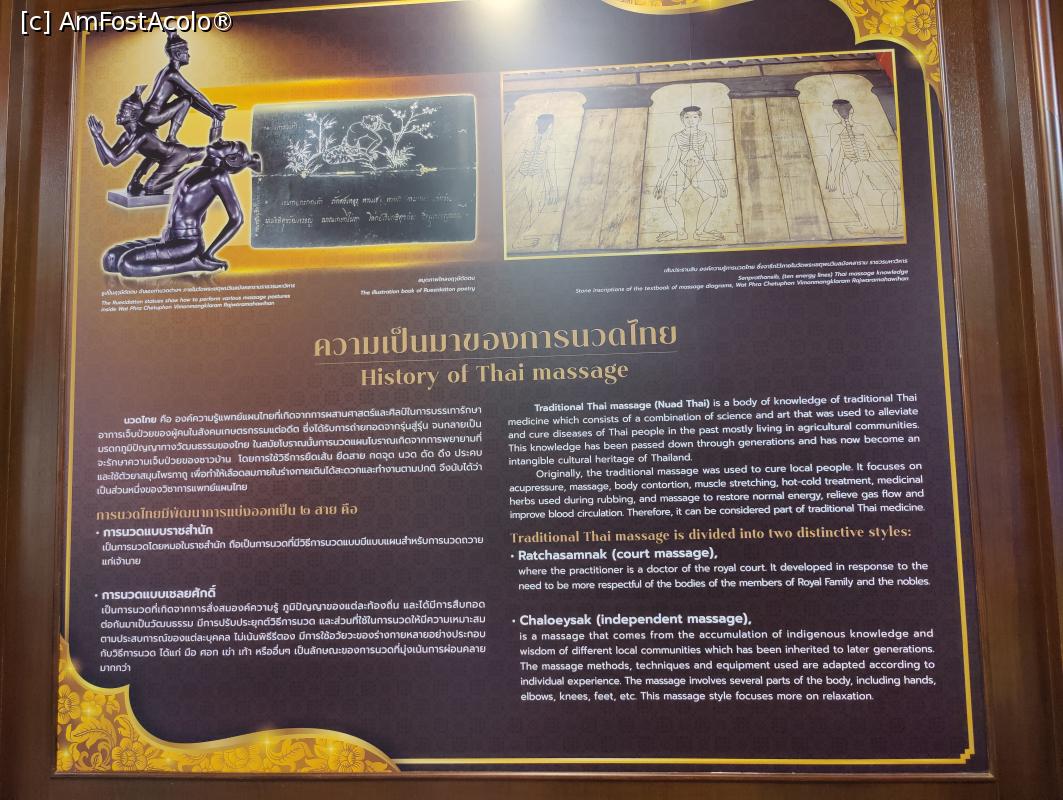 [c] AmFostAcolo®
รูปปั้นฤาษีดัดตน จำลองท่านวดต่างๆ ภายในวัดพระเชตุพนวิมลมังคลารามราชวรมหาวิหาร
The Rueesidatton statues show how to perform various massage postures
inside Wat Phra Chetuphon Vimonmangklaram Rajwaramahawihan
สมุดภาพโคลงฤาษีดัดตน
The illustration book of Rueesidatton poetry
เส้นประธานสิบ องค์ความรู้การนวดไทย ซึ่งจารึกไว้ภายในวัดพระเชตุพนวิมลมังคลาราม ราชวรมหาวิหาร
Senprathansib, (ten energy lines) Thai massage knowledge
Stone inscriptions of the textbook of massage diagrams, Wat Phra Chetuphon Vimonmangklaram Rajwaramahawihan
ความเป็นมาของการนวดไทย
History of Thai massage
นวดไทย คือ องค์ความรู้แพทย์แผนไทยที่เกิดจากการผสานศาสตร์และศิลป์ในการบรรเทารักษา
อาการเจ็บป่วยของผู้คนในสังคมเกษตรกรรมแต่อดีต ซึ่งได้รับการถ่ายทอดจากรุ่นสู่รุ่น จนกลายเป็น
มรดกภูมิปัญญาทางวัฒนธรรมของไทย ในสมัยโบราณนั้นการนวดแผนโบราณเกิดจากการพยายามที่
จะรักษาความเจ็บป่วยของชาวบ้าน โดยการใช้วิธีการยืดเส้น ยืดสาย กดจุด นวด ดัด ดึง ประคบ
และใช้ตัวยาสมุนไพรทาถู เพื่อทำให้เลือดลมภายในร่างกายเดินได้สะดวกและทำงานตามปกติ จึงนับได้ว่า
เป็นส่วนหนึ่งของวิชาการแพทย์แผนไทย
การนวดไทยมีพัฒนาการแบ่งออกเป็น ๒ สาย คือ
• การนวดแบบราชสำนัก
เป็นการนวดโดยหมอในราชสำนัก ถือเป็นการนวดที่มีวิธีการนวดแบบมีแบบแผนสำหรับการนวดถวาย
แก่เจ้านาย
• การนวดแบบเชลยศักดิ์
เป็นการนวดที่เกิดจากการสั่งสมองค์ความรู้ ภูมิปัญญาของแต่ละท้องถิ่น และได้มีการสืบทอด
ต่อกันมาเป็นวัฒนธรรม มีการปรับประยุกต์วิธีการนวด และส่วนที่ใช้ในการนวดให้มีความเหมาะสม
ตามประสบการณ์ของแต่ละบุคคล ไม่เน้นพิธีรีตอง มีการใช้อวัยวะของร่างกายหลายอย่างประกอบ
กับวิธีการนวด ได้แก่ มือ ศอก เข่า เท้า หรืออื่นๆ เป็นลักษณะของการนวดที่มุ่งเน้นการผ่อนคลาย
มากกว่า
Traditional Thai massage (Nuad Thai) is a body of knowledge of traditional Thai
medicine which consists of a combination of science and art that was used to alleviate
and cure diseases of Thai people in the past mostly living in agricultural communities.
This knowledge has been passed down through generations and has now become an
intangible cultural heritage of Thailand.
Originally, the traditional massage was used to cure local people. It focuses on
acupressure, massage, body contortion, muscle stretching, hot-cold treatment, medicinal
herbs used during rubbing, and massage to restore normal energy, relieve gas flow and
improve blood circulation. Therefore, it can be considered part of traditional Thai medicine.
Traditional Thai massage is divided into two distinctive styles:
• Ratchasamnak (court massage),
where the practitioner is a doctor of the royal court. It developed in response to the
need to be more respectful of the bodies of the members of Royal Family and the nobles.
• Chaloeysak (independent massage),
is a massage that comes from the accumulation of indigenous knowledge and
wisdom of different local communities which has been inherited to later generations.
The massage methods, techniques and equipment used are adapted according to
individual experience. The massage involves several parts of the body, including hands,
elbows, knees, feet, etc. This massage style focuses more on relaxation.